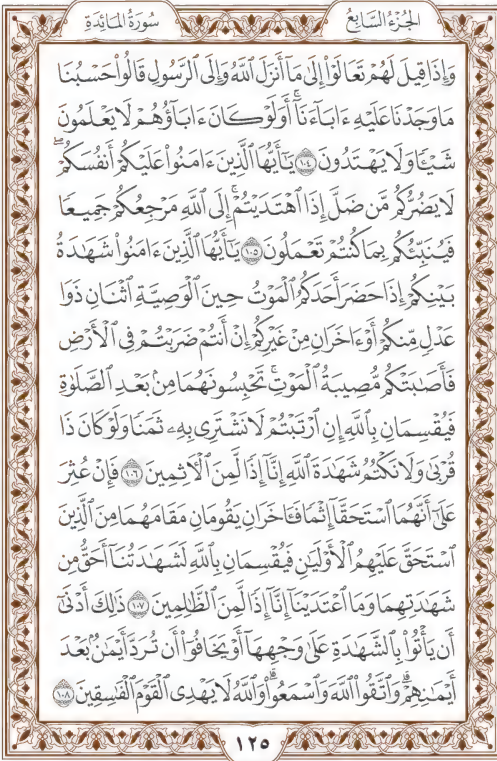 الجُزْءُ السَّابِعُ
سُورَةُ المَائِدَةِ
وَإِذَا قِيلَ لَهُمْ تَعَالَوْا۟ إِلَىٰ مَآ أَنزَلَ ٱللَّهُ وَإِلَى ٱلرَّسُولِ قَالُوا۟ حَسْبُنَا
مَا وَجَدْنَا عَلَيْهِ ءَابَآءَنَآ ۚ أَوَلَوْ كَانَ ءَابَآؤُهُمْ لَا يَعْلَمُونَ
شَيْـًٔا وَلَا يَهْتَدُونَ ١٠٤ يَـٰٓأَيُّهَا ٱلَّذِينَ ءَامَنُوا۟ عَلَيْكُمْ أَنفُسَكُمْ ۖ
لَا يَضُرُّكُم مَّن ضَلَّ إِذَا ٱهْتَدَيْتُمْ ۚ إِلَى ٱللَّهِ مَرْجِعُكُمْ جَمِيعًا
فَيُنَبِّئُكُم بِمَا كُنتُمْ تَعْمَلُونَ ١٠٥ يَـٰٓأَيُّهَا ٱلَّذِينَ ءَامَنُوا۟ شَهَـٰدَةُ
بَيْنِكُمْ إِذَا حَضَرَ أَحَدَكُمُ ٱلْمَوْتُ حِينَ ٱلْوَصِيَّةِ ٱثْنَانِ ذَوَا
عَدْلٍ مِّنكُمْ أَوْ ءَاخَرَانِ مِنْ غَيْرِكُمْ إِنْ أَنتُمْ ضَرَبْتُمْ فِى ٱلْأَرْضِ
فَأَصَـٰبَتْكُم مُّصِيبَةُ ٱلْمَوْتِ ۚ تَحْبِسُونَهُمَا مِنۢ بَعْدِ ٱلصَّلَوٰةِ
فَيُقْسِمَانِ بِٱللَّهِ إِنِ ٱرْتَبْتُمْ لَا نَشْتَرِى بِهِۦ ثَمَنًا وَلَوْ كَانَ ذَا
قُرْبَىٰ ۙ وَلَا نَكْتُمُ شَهَـٰدَةَ ٱللَّهِ إِنَّآ إِذًا لَّمِنَ ٱلْـَٔاثِمِينَ ١٠٦ فَإِنْ عُثِرَ
عَلَىٰٓ أَنَّهُمَا ٱسْتَحَقَّآ إِثْمًا فَـَٔاخَرَانِ يَقُومَانِ مَقَامَهُمَا مِنَ ٱلَّذِينَ
ٱسْتَحَقَّ عَلَيْهِمُ ٱلْأَوْلَيَـٰنِ فَيُقْسِمَانِ بِٱللَّهِ لَشَهَـٰدَتُنَآ أَحَقُّ مِن
شَهَـٰدَتِهِمَا وَمَا ٱعْتَدَيْنَآ إِنَّآ إِذًا لَّمِنَ ٱلظَّـٰلِمِينَ ١٠٧ ذَٰلِكَ أَدْنَىٰٓ
أَن يَأْتُوا۟ بِٱلشَّهَـٰدَةِ عَلَىٰ وَجْهِهَآ أَوْ يَخَافُوٓا۟ أَن تُرَدَّ أَيْمَـٰنٌۢ بَعْدَ
أَيْمَـٰنِهِمْ ۗ وَٱتَّقُوا۟ ٱللَّهَ وَٱسْمَعُوا۟ ۗ وَٱللَّهُ لَا يَهْدِى ٱلْقَوْمَ ٱلْفَـٰسِقِينَ ١٠٨
١٢٥